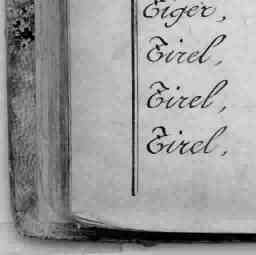 Tiger,
Tirel,
Tirel,
Tirel,